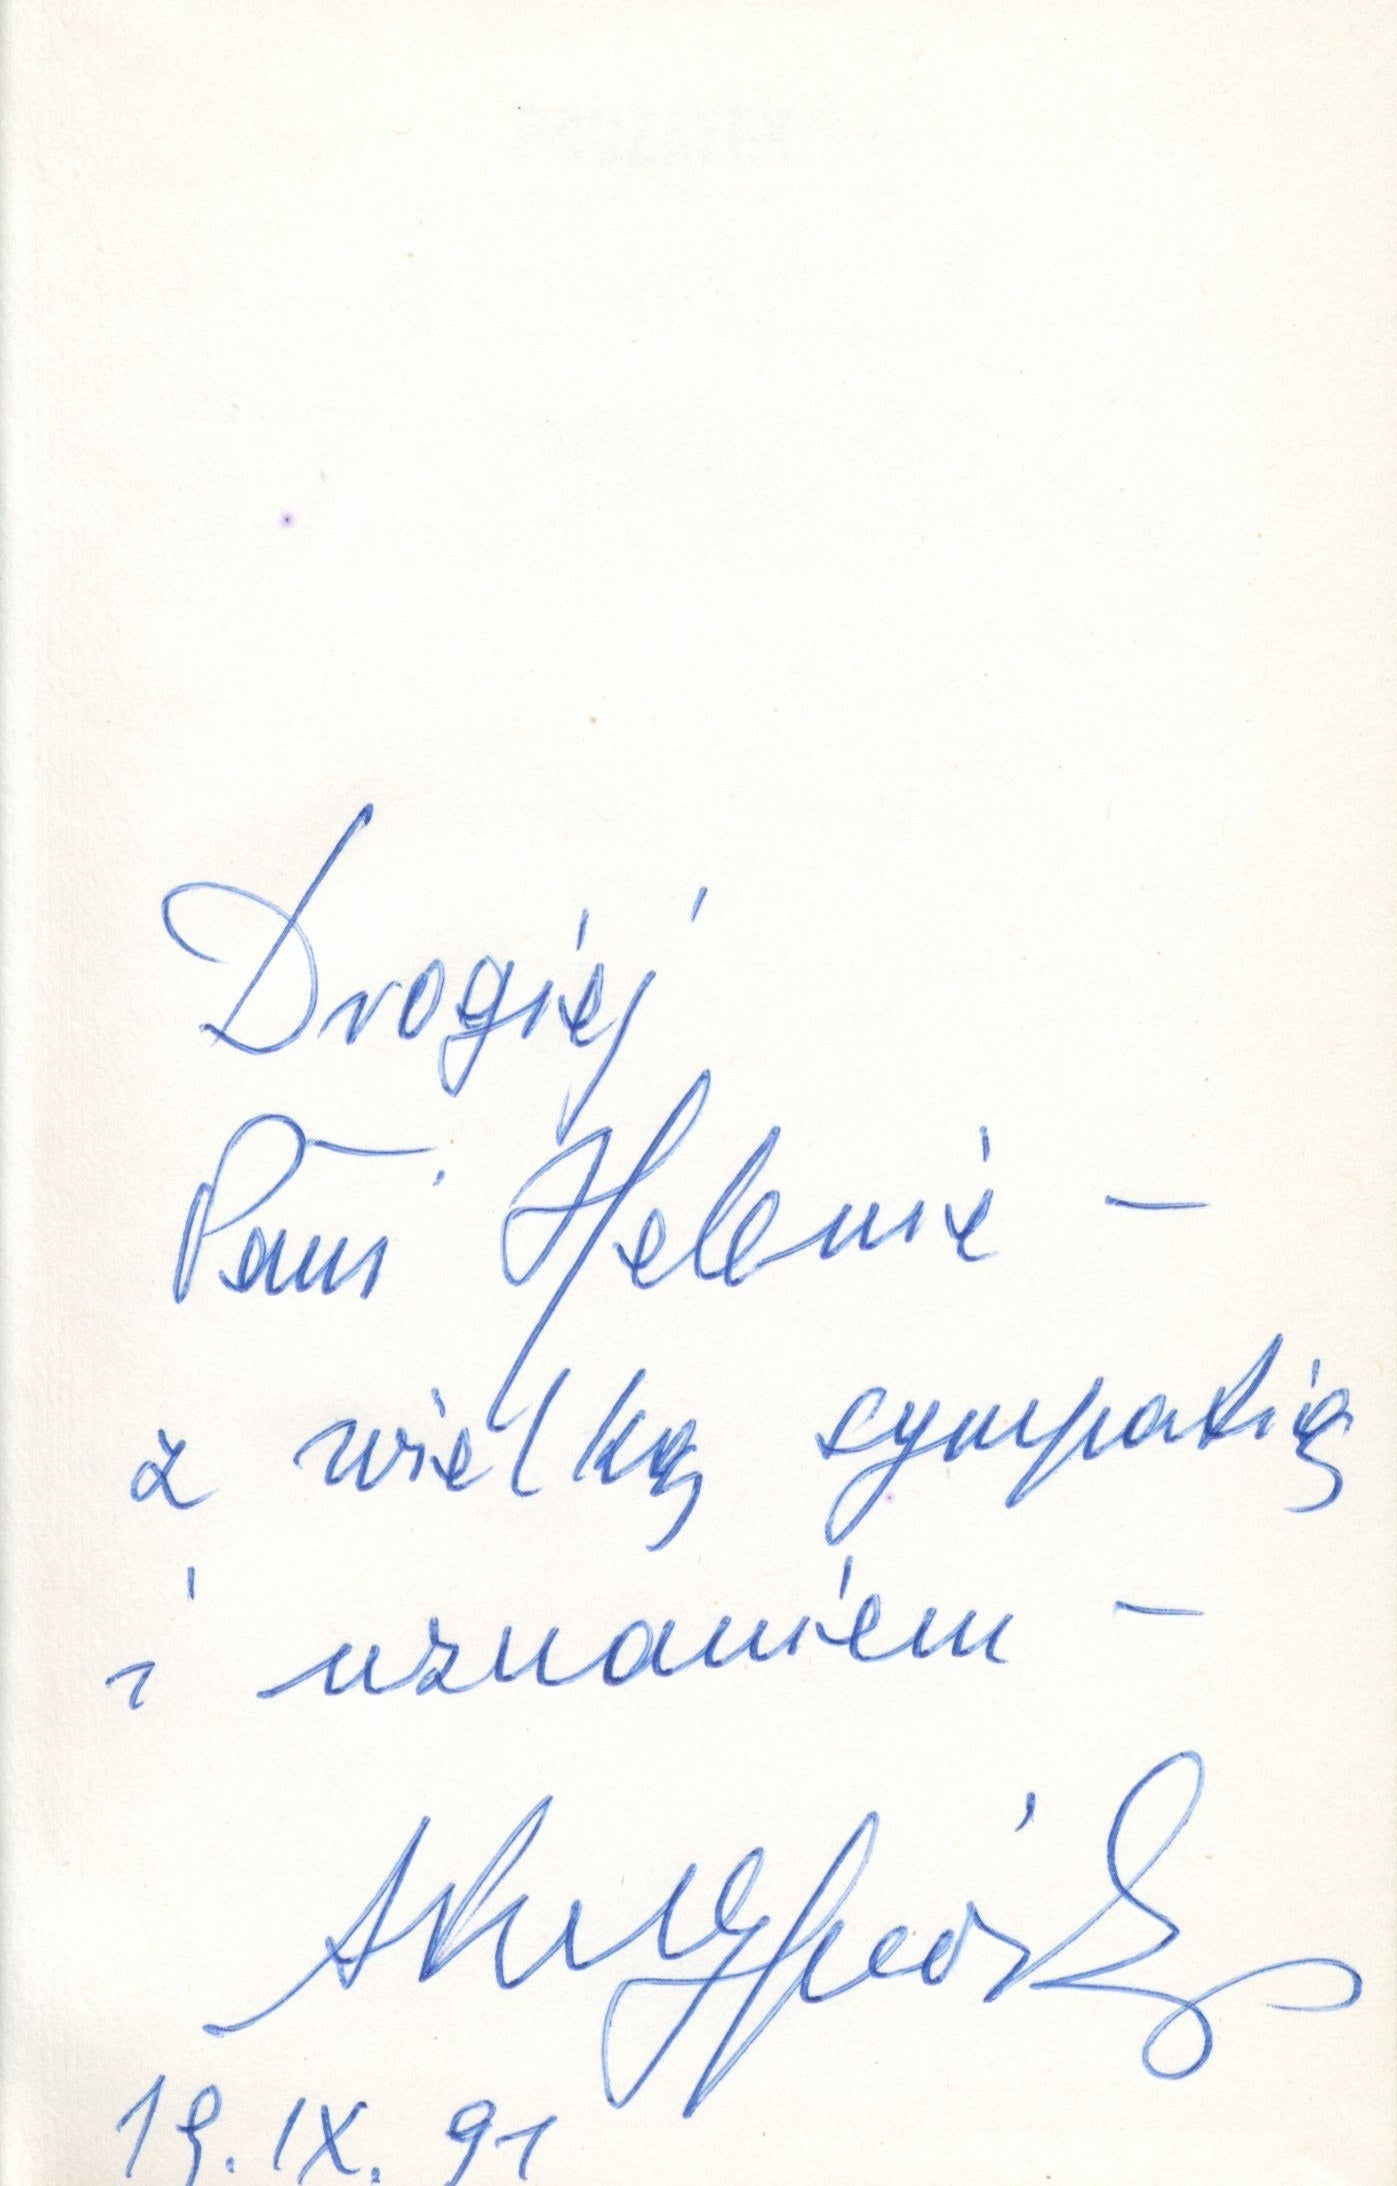 Drogiej
Pani Helenie –
z wielką sympatią
i uznaniem –
19. IX. 91